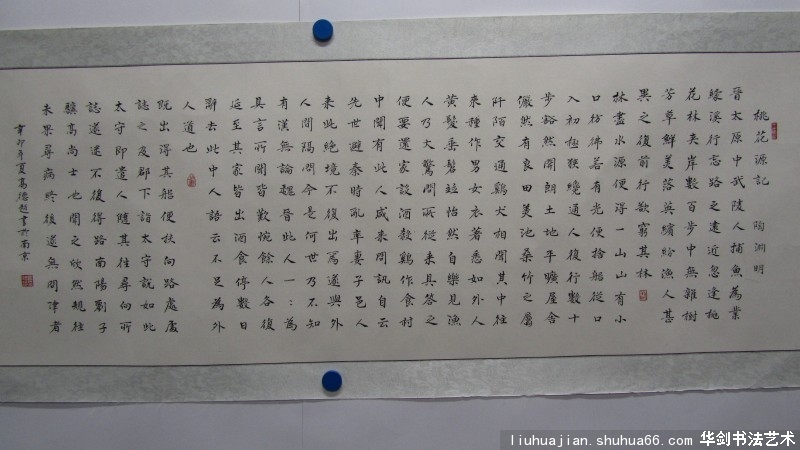 桃花源記 陶渊明
晉太原中武陵人捕魚為業
緣溪行忘路之遠近忽逢桃
花林夹岸數百步中無雜樹
芳草鮮美落英繽紛漁人甚
異之復前行欲窮其林
林盡水源便得一山山有小
口彷彿若有光便捨船從口
入初極狹纔通人復行數十
步豁然開朗土地平曠屋舍
儼然有良田美池桑竹之屬
阡陌交通鷄犬相聞其中往
来種作男女衣著悉如外人
黄髮垂髫怡然自樂見漁
人乃大驚問所從来具答之
便要還家設酒殺鷄作食村
中聞有此人咸来問訊自云
先世避秦時亂率妻子邑人
来此絕境不復出焉遂與外
人間隔問今是何世乃不知
有漢無論魏晉此人一:為
具言所聞皆歎惋餘人各復
延至其家皆出酒食停數日
辭去此中人語云不足為外
人道也
既出得其船便扶向路處處
誌之及郡下詣太守說如此
太守即遣人隨其往尋向所
誌遂迷不復得路南陽劉子
驥高尚士也聞之欣然規往
未果尋病終後遂無問津者
辛卯年夏高德超書於南京
liuhuajian.shuhua66.com 华剑书法艺术